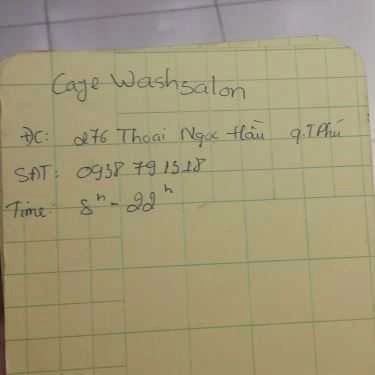 Cage Washsalon
ĐC: 276 Thoại Ngọc Hầu q.TPhú
SĐT: 0938 791318
Time: 8h - 22h